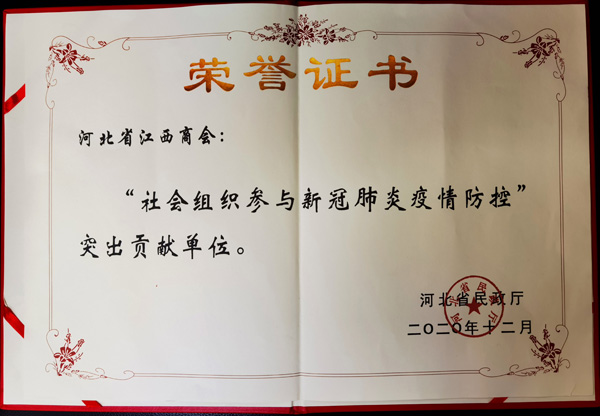 荣誉证书
河北省江西商会：
“社会组织参与新冠肺炎疫情防控”
突出贡献单位。
河北省民政厅
二〇二〇年十二月
河北省民政厅